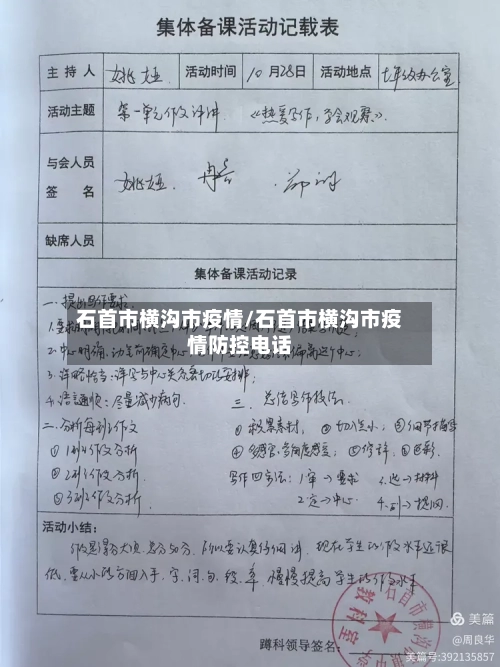 集体备课活动记载表
主持人 姚娅 活动时间 10月28日 活动地点 七年级办公室
活动主题 第一单元作文评讲 《热爱写作,学会观察》
与会人员
签名 姚娅
缺席人员
集体备课活动记录
一、提出写作要求
石首市横沟市疫情/石首市横沟市疫
情防控电话
2.中心明确
3.详略恰当:详写与中心关系密切的
4.语言通顺:尽量减少病句.
三、总结写作技法:
二、分析每班作文
①积累素材, ②切入点小, ③细节描写
①1班作文分析
②2班作文分析.
③3班作文分析.
写作四字法:1审→要求
2.定→中心
4.列→提纲.
活动小结:
作文是语文大项,总分50分,所以要认真仔细讲,现在学生的作文水平还很
低,要从小的方面入手,字、词、句、段、章,慢慢提高学生的作文水平
蹲科领导签名:
石首市横沟
教科室
美篇
@周良华
美篇号:392135857